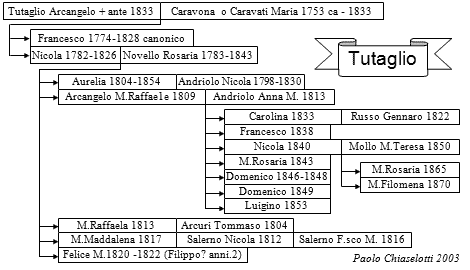 Tutaglio Arcangelo + ante 1833 Caravona o Caravati Maria 1753 ca - 1833
Francesco 1774-1828 canonico
Nicola 1782-1826 Novello Rosaria 1783-1843
Tutaglio
Aurelia 1804-1854 Andriolo Nicola 1798-1830
Arcangelo M.Raffaele 1809 Andriolo Anna M. 1813
Carolina 1833 Russo Gennaro 1822
Francesco 1838
Nicola 1840 Mollo M.Teresa 1850
M.Rosaria 1843 M.Rosaria 1865
Domenico 1846-1848 M.Filomena 1870
Domenico 1849
Luigino 1853
M.Raffaela 1813 Arcuri Tommaso 1804
M.Maddalena 1817 Salerno Nicola 1812 Salerno F.sco M. 1816
Felice M.1820 -1822 (Filippo? anni.2)
Paolo Chiaselotti 2003